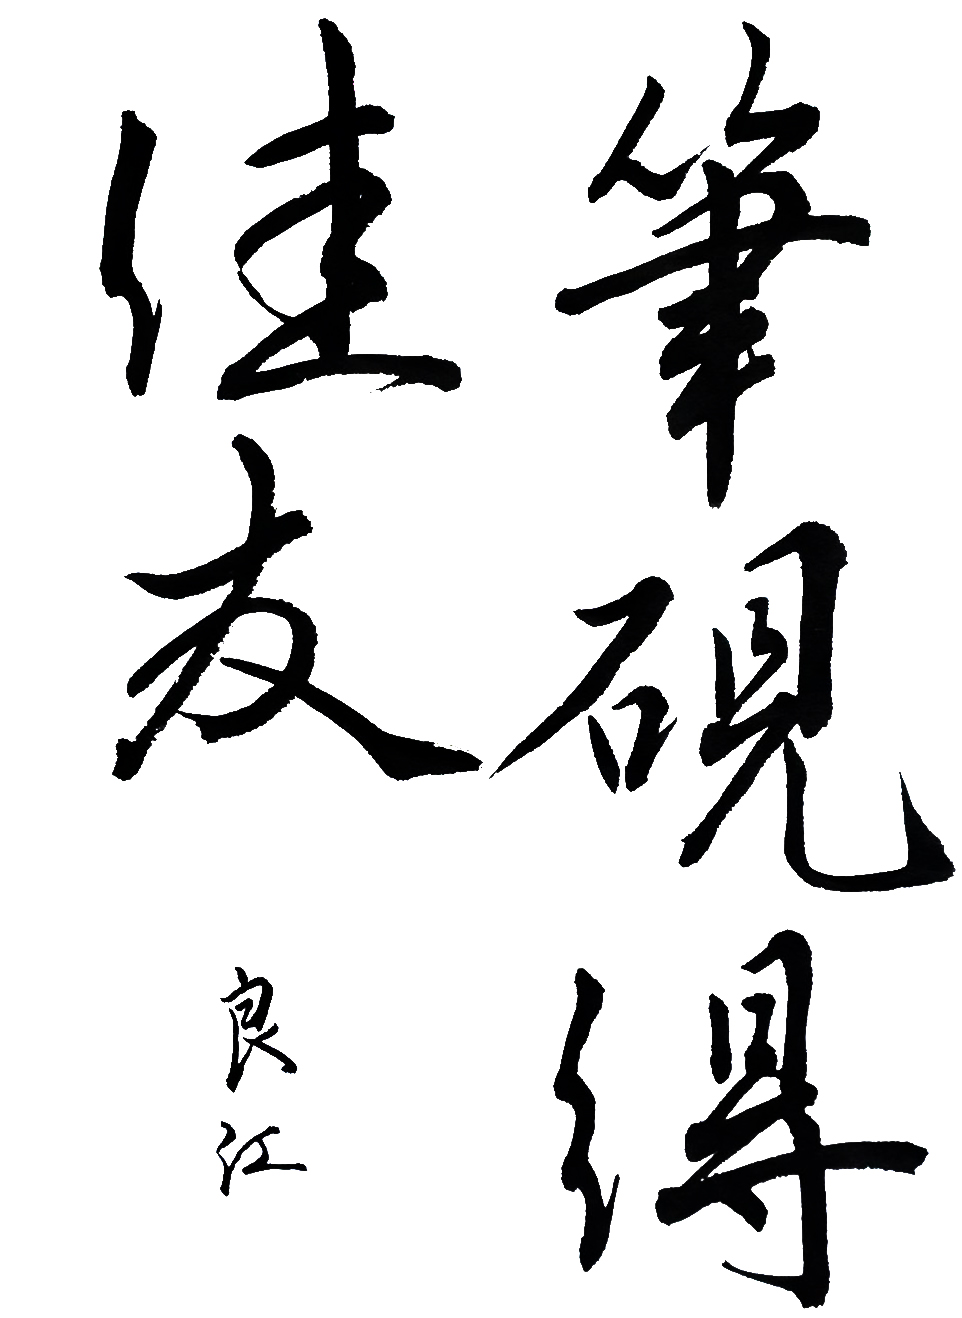 筆硯得
佳友
良江